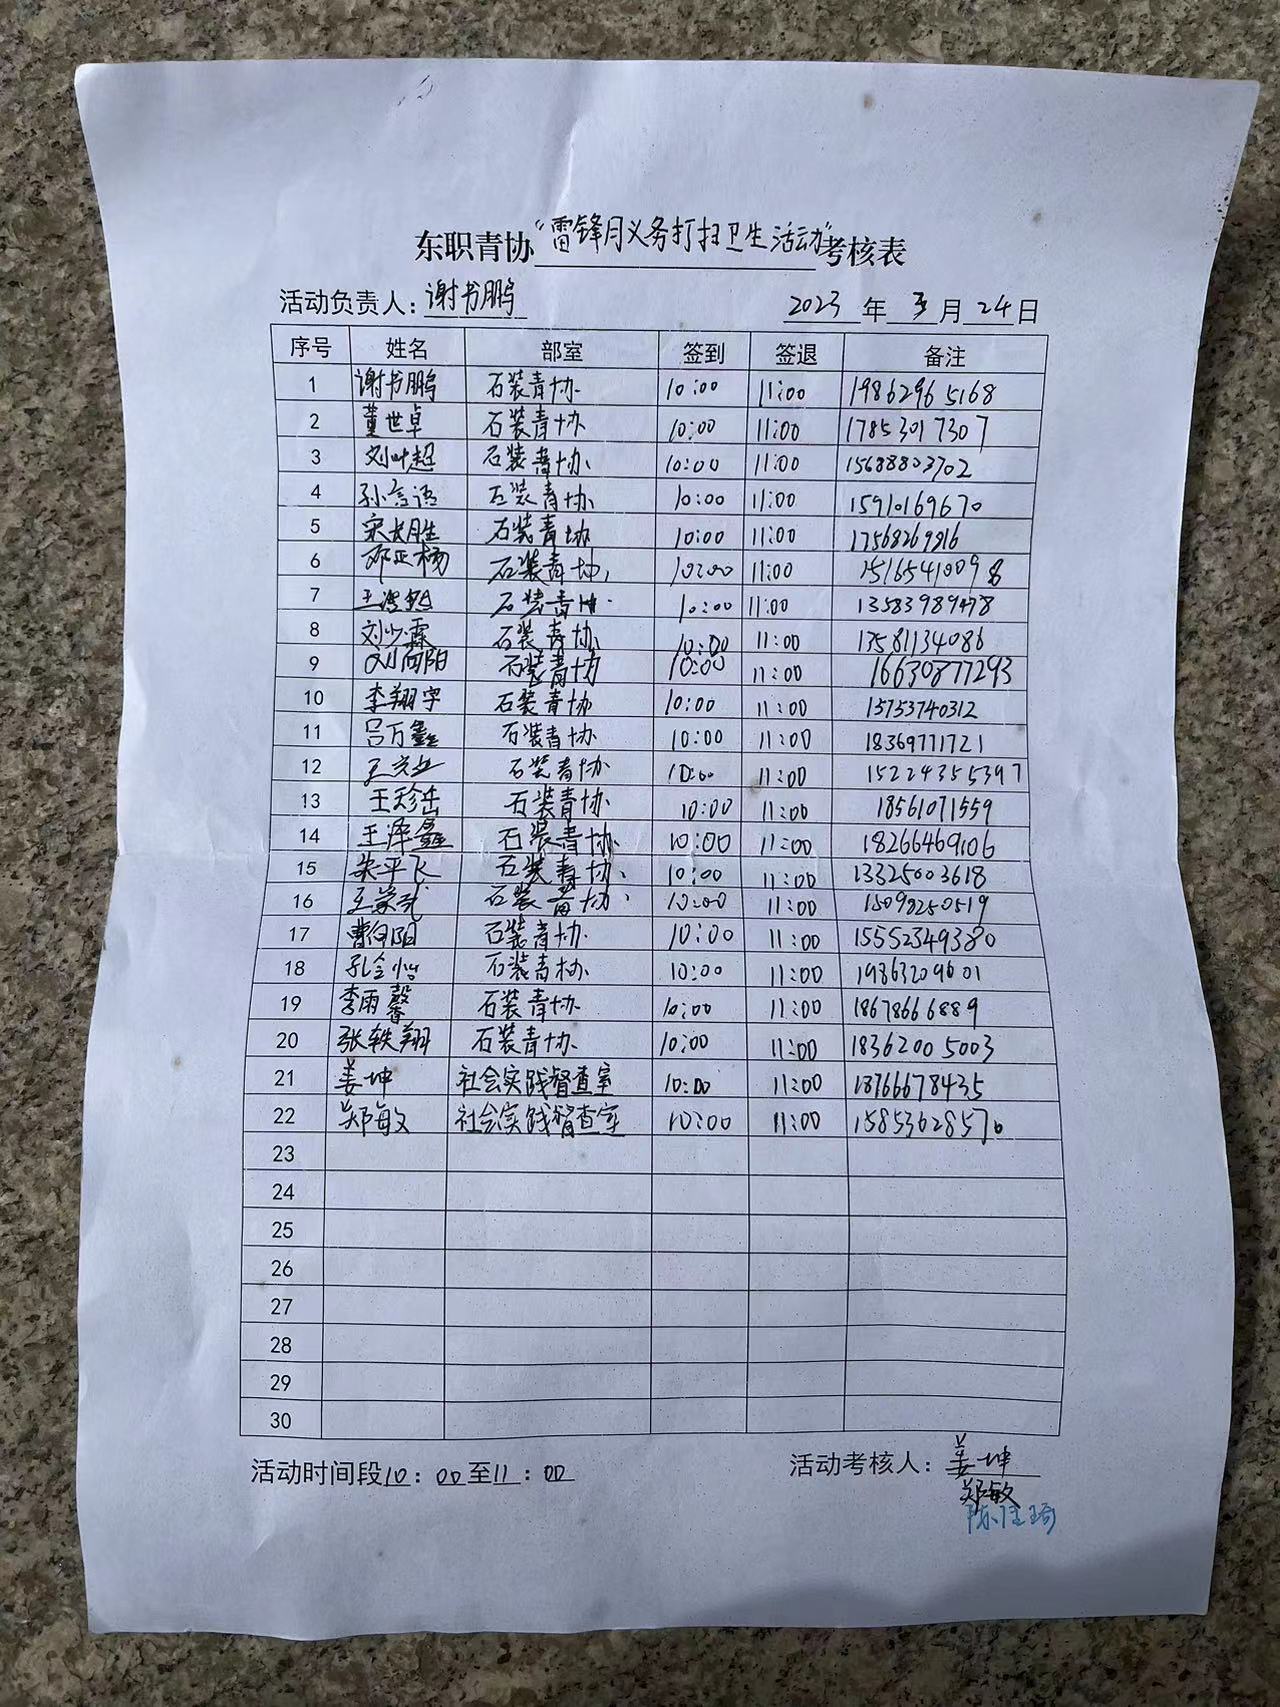 东职青协“雷锋月义务打扫卫生活动”考核表
活动负责人：谢书鹏 2023年3月24日
序号 姓名 部室 签到 签退 备注
1 谢书鹏 石装青协 10:00 11:00 19862965168
2 董世卓 石装青协 10:00 11:00 17853017307
3 刘叶超 石装青协 10:00 11:00 15688803702
4 孙言语 石装青协 10:00 11:00 15910169670
5 宋长胜 石装青协 10:00 11:00 17568269816
6 邓正杨 石装青协 10:00 11:00 15165410098
7 石装青协 10:00 11:00 13583989478
8 刘少霖 石装青协 10:00 11:00 17581134086
9 刘向阳 石装青协 10:00 11:00 16630877293
10 李翔宇 石装青协 10:00 11:00 15753740312
11 吕万鑫 石装青协 10:00 11:00 18369771721
12 石装青协 10:00 11:00 15224355397
13 王珍岳 石装青协 10:00 11:00 18561071559
14 王泽鑫 石装青协 10:00 11:00 18266469106
15 朱平飞 石装青协 10:00 11:00 13325003618
16 石装青协 10:00 11:00 15098250519
17 曹向阳 石装青协 10:00 11:00 15552349380
18 孔令怡 石装青协 10:00 11:00 19863209601
19 李雨馨 石装青协 10:00 11:00 18678666889
20 张轶翔 石装青协 10:00 11:00 18362005003
21 姜坤 社会实践督查室 10:00 11:00 18766678435
22 郑敏 社会实践督查室 10:00 11:00 15853628570
23
24
25
26
27
28
29
30
活动时间段10：00至11：00 活动考核人：姜坤
郑敏
陈佳琦